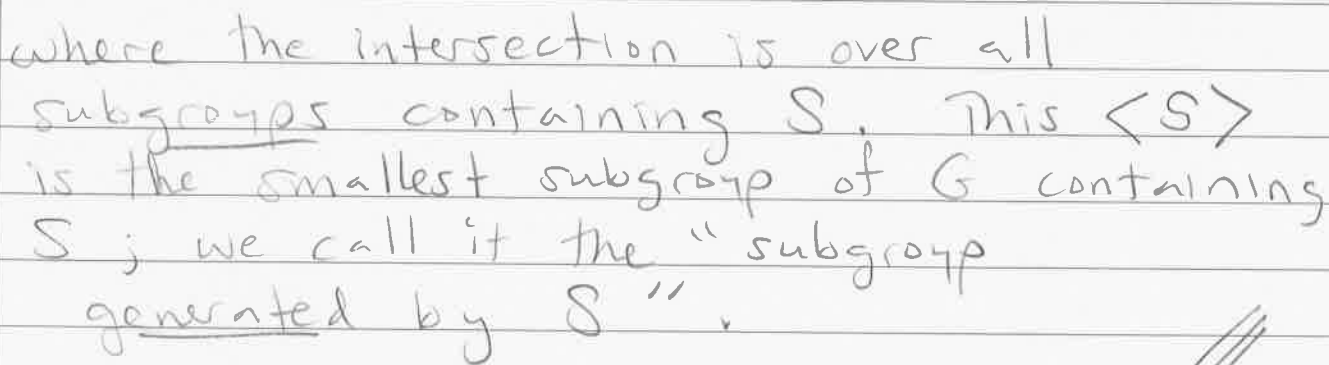 where the intersection is over all
subgroups containing S. This <S>
is the smallest subgroup of G containing
S; we call it the "subgroup
generated by S".